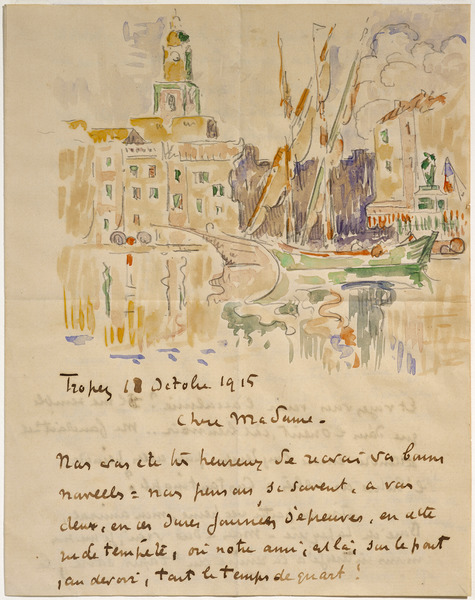 Tropez 18 Octobre 1915
Chere Madame.
Nous avons été très heureux de recevoir vos bonnes
nouvelles = nous pensons, si souvent, a vous
deux, en ces dures journées d'épreuves, en cette
rue de tempête, où notre ami, est là, sur le pont
, au devoir, tout le temps de quart !